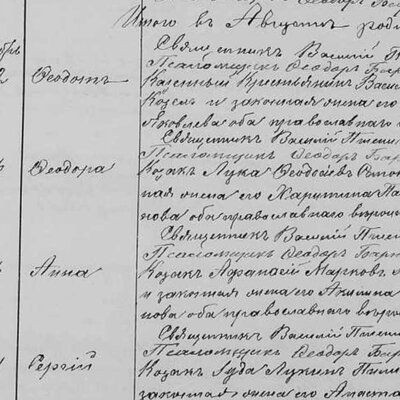 Итого въ Августѣ роди
Священникъ Василій П
Псаломщикъ Ѳеодоръ Ба
Ѳеодотъ Казенный Крестьянинъ Васи
Козел и законная жена его
Яковлева оба православнаго
Священникъ Василій Пшени
Псаломщикъ Ѳеодоръ Ба
Ѳеодора Козакъ Лука Ѳеодосіевъ
ная жена его Харитина Па
нова оба православнаго вѣрои
Священникъ Василій Пшени
Псаломщикъ Ѳеодоръ Ба
Анна Козакъ Афанасій Марковъ
и законная жена его Акилина
пова оба православнаго вѣрои
Священникъ Василій Пшени
Псаломщикъ Ѳеодоръ Ба
Сергій Козакъ Іуда Лукинъ
законная жена его Анаста